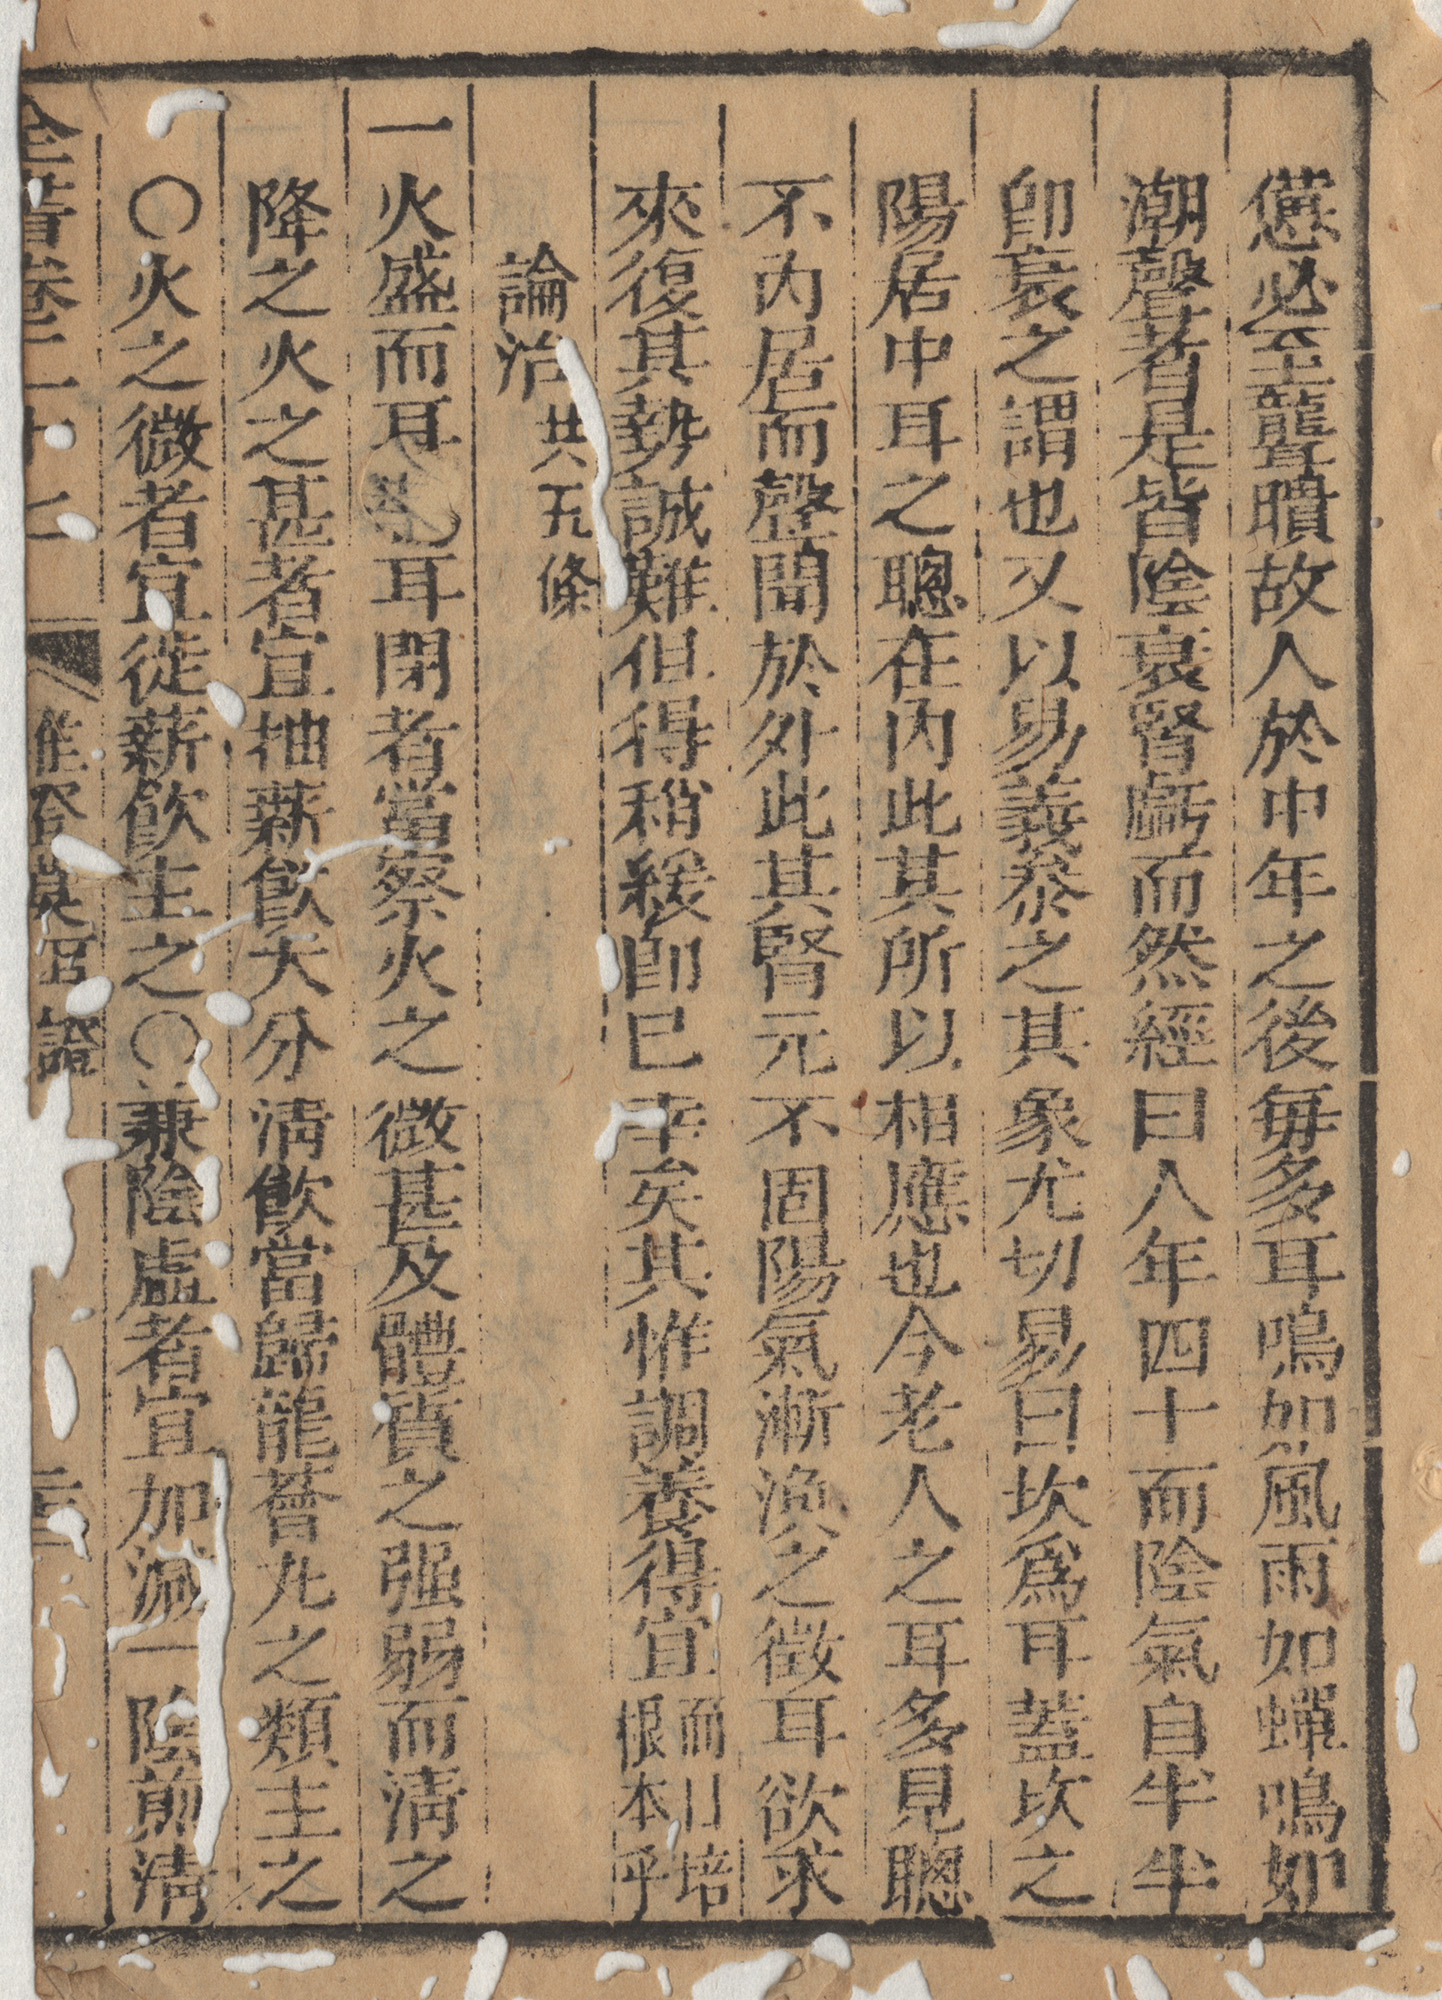 憊必至聾聵故人於中年之後每多耳鳴如風雨如蟬鳴如
潮聲者是皆陰衰腎虧而然經曰人年四十而陰氣自半半
卽衰之謂也又以易義參之其象尤切易曰坎爲耳蓋坎之
陽居中耳之聰在內此其所以相應也今老人之耳多見聰
不內居而聲聞於外此其腎元不固陽氣漸渙之徵耳欲求
來復其勢誠難但得稍緩卽已幸矣其惟調養得宜而日培
根本乎
論治共五條
一火盛而耳鳴耳閉者當察火之微甚及體質之强弱而淸之
降之火之甚者宜抽薪飮大分淸飮當歸龍薈丸之類主之
○火之微者宜徙薪飮主之○兼陰虛者宜加減一陰煎淸
全書卷二十七 雜證謨耳證